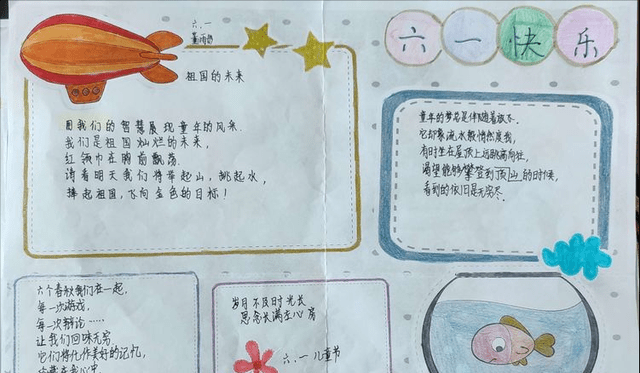 六一快乐
六、一
祖国的未来
用我们的智慧展现童年的风采.
我们是祖国灿烂的未来,
红领巾在胸前飘荡.
请看明天我们将举起山,挑起水,
捧起祖国,飞向金色的目标!
童年的梦总是伴随着欢乐.
它却像流水般悄然度我,
有时坐在屋顶上远眺高向往,
渴望能够攀登到顶山的时候,
看到的依旧是无穷尽.
六个春秋我们在一起,
每一次游戏,
每一次辩论……
让我们回味无穷
它们将化作美好的记忆,
岁月不及时光长
思念长满在心房
六.一儿童节